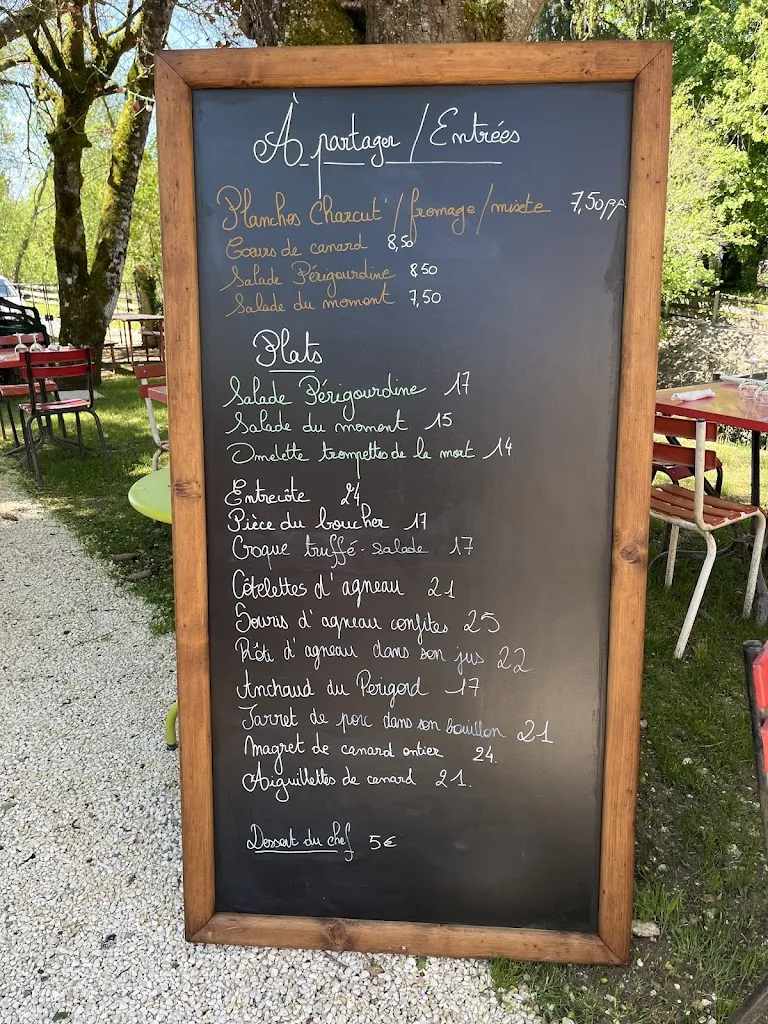 À partager / Entrées
Planches Charcut' / fromage / mixte 7,50 pp.
Coeurs de canard 8,50
Salade Périgourdine 8 50
Salade du moment 7,50
Plats
Salade Périgourdine 17
Salade du moment 15
Omelette trompettes de la mort 14
Entrecôte 24
Pièce du boucher 17
Croque truffé - salade 17
Côtelettes d'agneau 21
Souris d'agneau confites 25
Rôti d'agneau dans son jus 22
Anchaud du Périgord 17
Jarret de porc dans son bouillon 21
Magret de canard entier 24.
Aiguillettes de canard 21.
Dessert du chef 5€